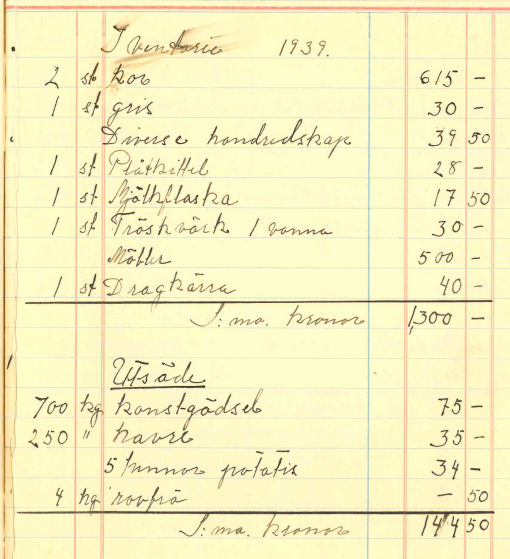 Iventarie 1939.
2 st kor 615 -
1 st gris 30 -
Diverse handredskap 39 50
1 st Plåtkittel 28 -
1 st Mjölkflaska 17 50
1 st Tröskvärk 1 vanna 30 -
Möbler 500 -
1 st Dragkärra 40 -
S:ma. kronor 1,300 -
Utsäde
700 kg konstgödsel 75 -
250 " havre 35 -
5 tunnor potatis 34 -
4 kg rovfrö - 50
S:ma. kronor 144 50